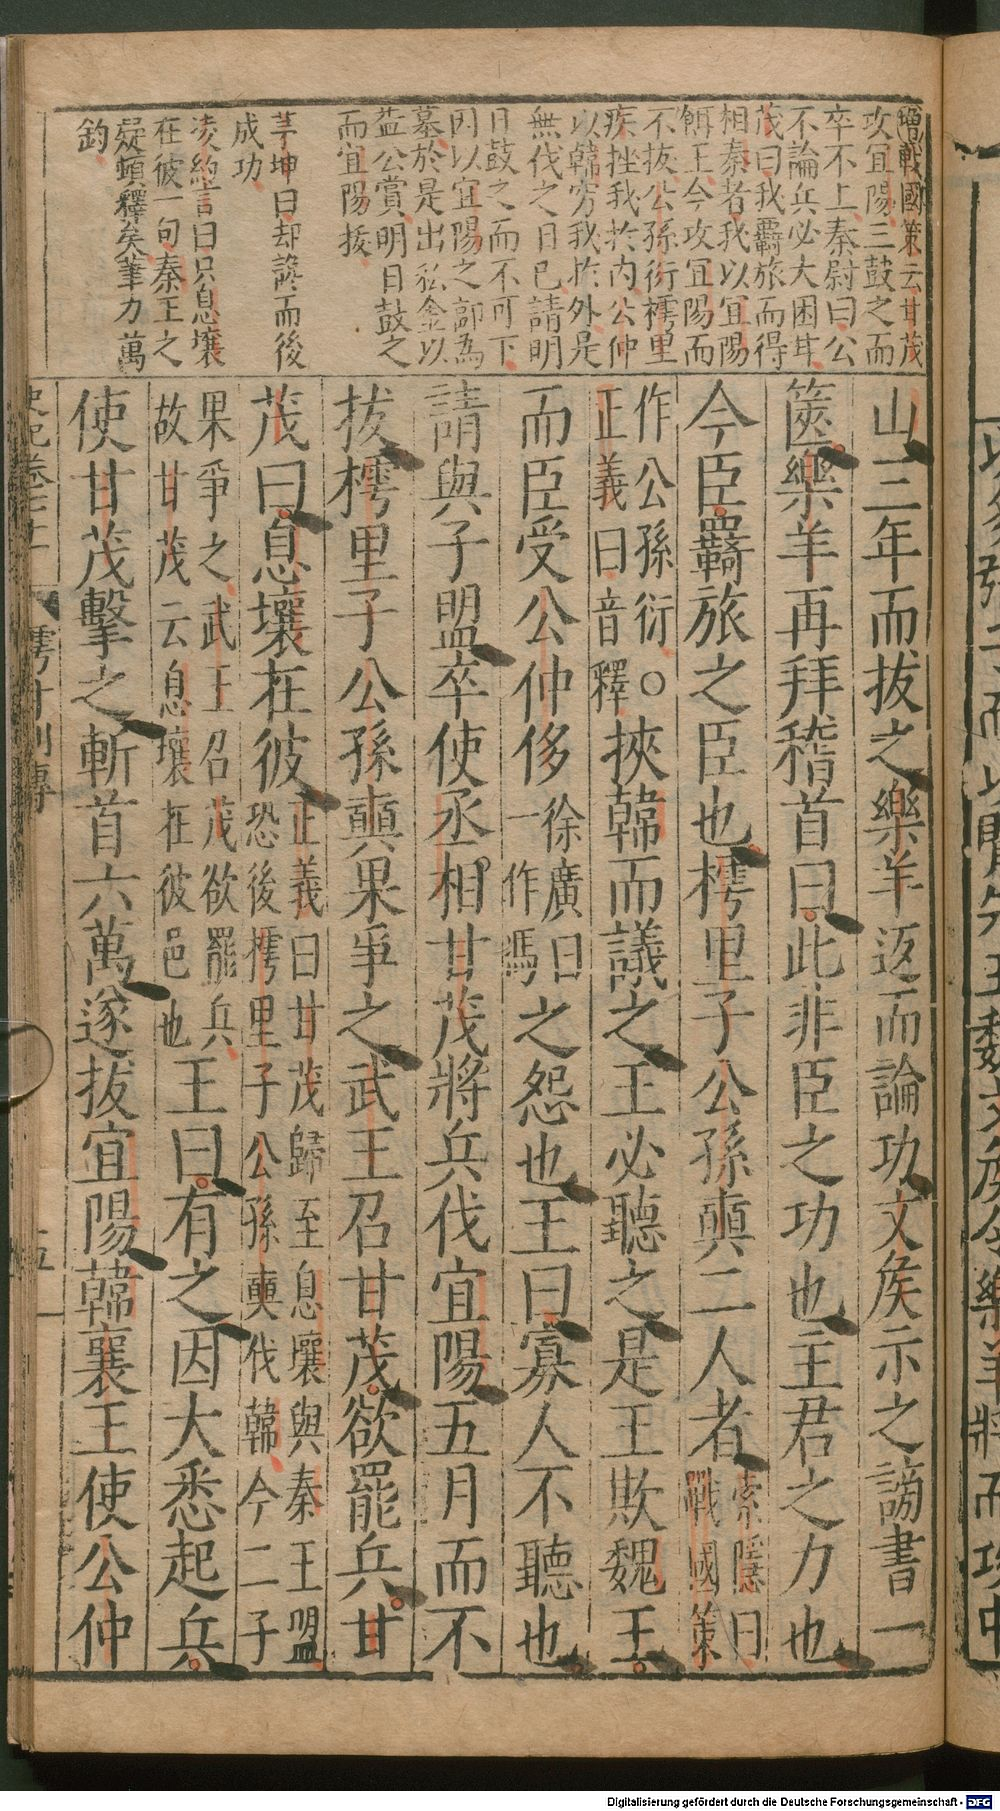 增戰國策云甘茂
攻宜陽三鼓之而
卒不上秦尉曰公
不論兵必大困甘
茂曰我羈旅而得
相秦者我以宜陽
餌王今攻宜陽而
不拔公孫衍樗里
疾挫我於內公仲
以韓窮我於外是
無伐之日已請明
日鼓之而不可下
因以宜陽之郭為
墓於是出私金以
益公賞明日鼓之
而宜陽拔
茅坤曰却讒而後
成功
凌約言曰只息壤
在彼一句秦王之
疑頓釋矣筆力萬
鈞
山三年而拔之樂羊返而論功文矦示之謗書一
篋樂羊再拜稽首曰此非臣之功也主君之力也
今臣羈旅之臣也樗里子公孫奭二人者索隱曰戰國策
作公孫衍○正義曰音釋挾韓而議之王必聽之是王欺魏王
而臣受公仲侈徐廣曰一作馮之怨也王曰寡人不聽也
請與子盟卒使丞相甘茂將兵伐宜陽五月而不
拔樗里子公孫奭果爭之武王召甘茂欲罷兵甘
茂曰息壤在彼正義曰甘茂歸至息壤與秦王盟恐後樗里子公孫奭伐韓今二子
果爭之武王召茂欲罷兵故甘茂云息壤在彼邑也王曰有之因大悉起兵
使甘茂擊之斬首六萬遂拔宜陽韓襄王使公仲
樗甘列傳
Digitalisierung gefördert durch die Deutsche Forschungsgemeinschaft - DFG